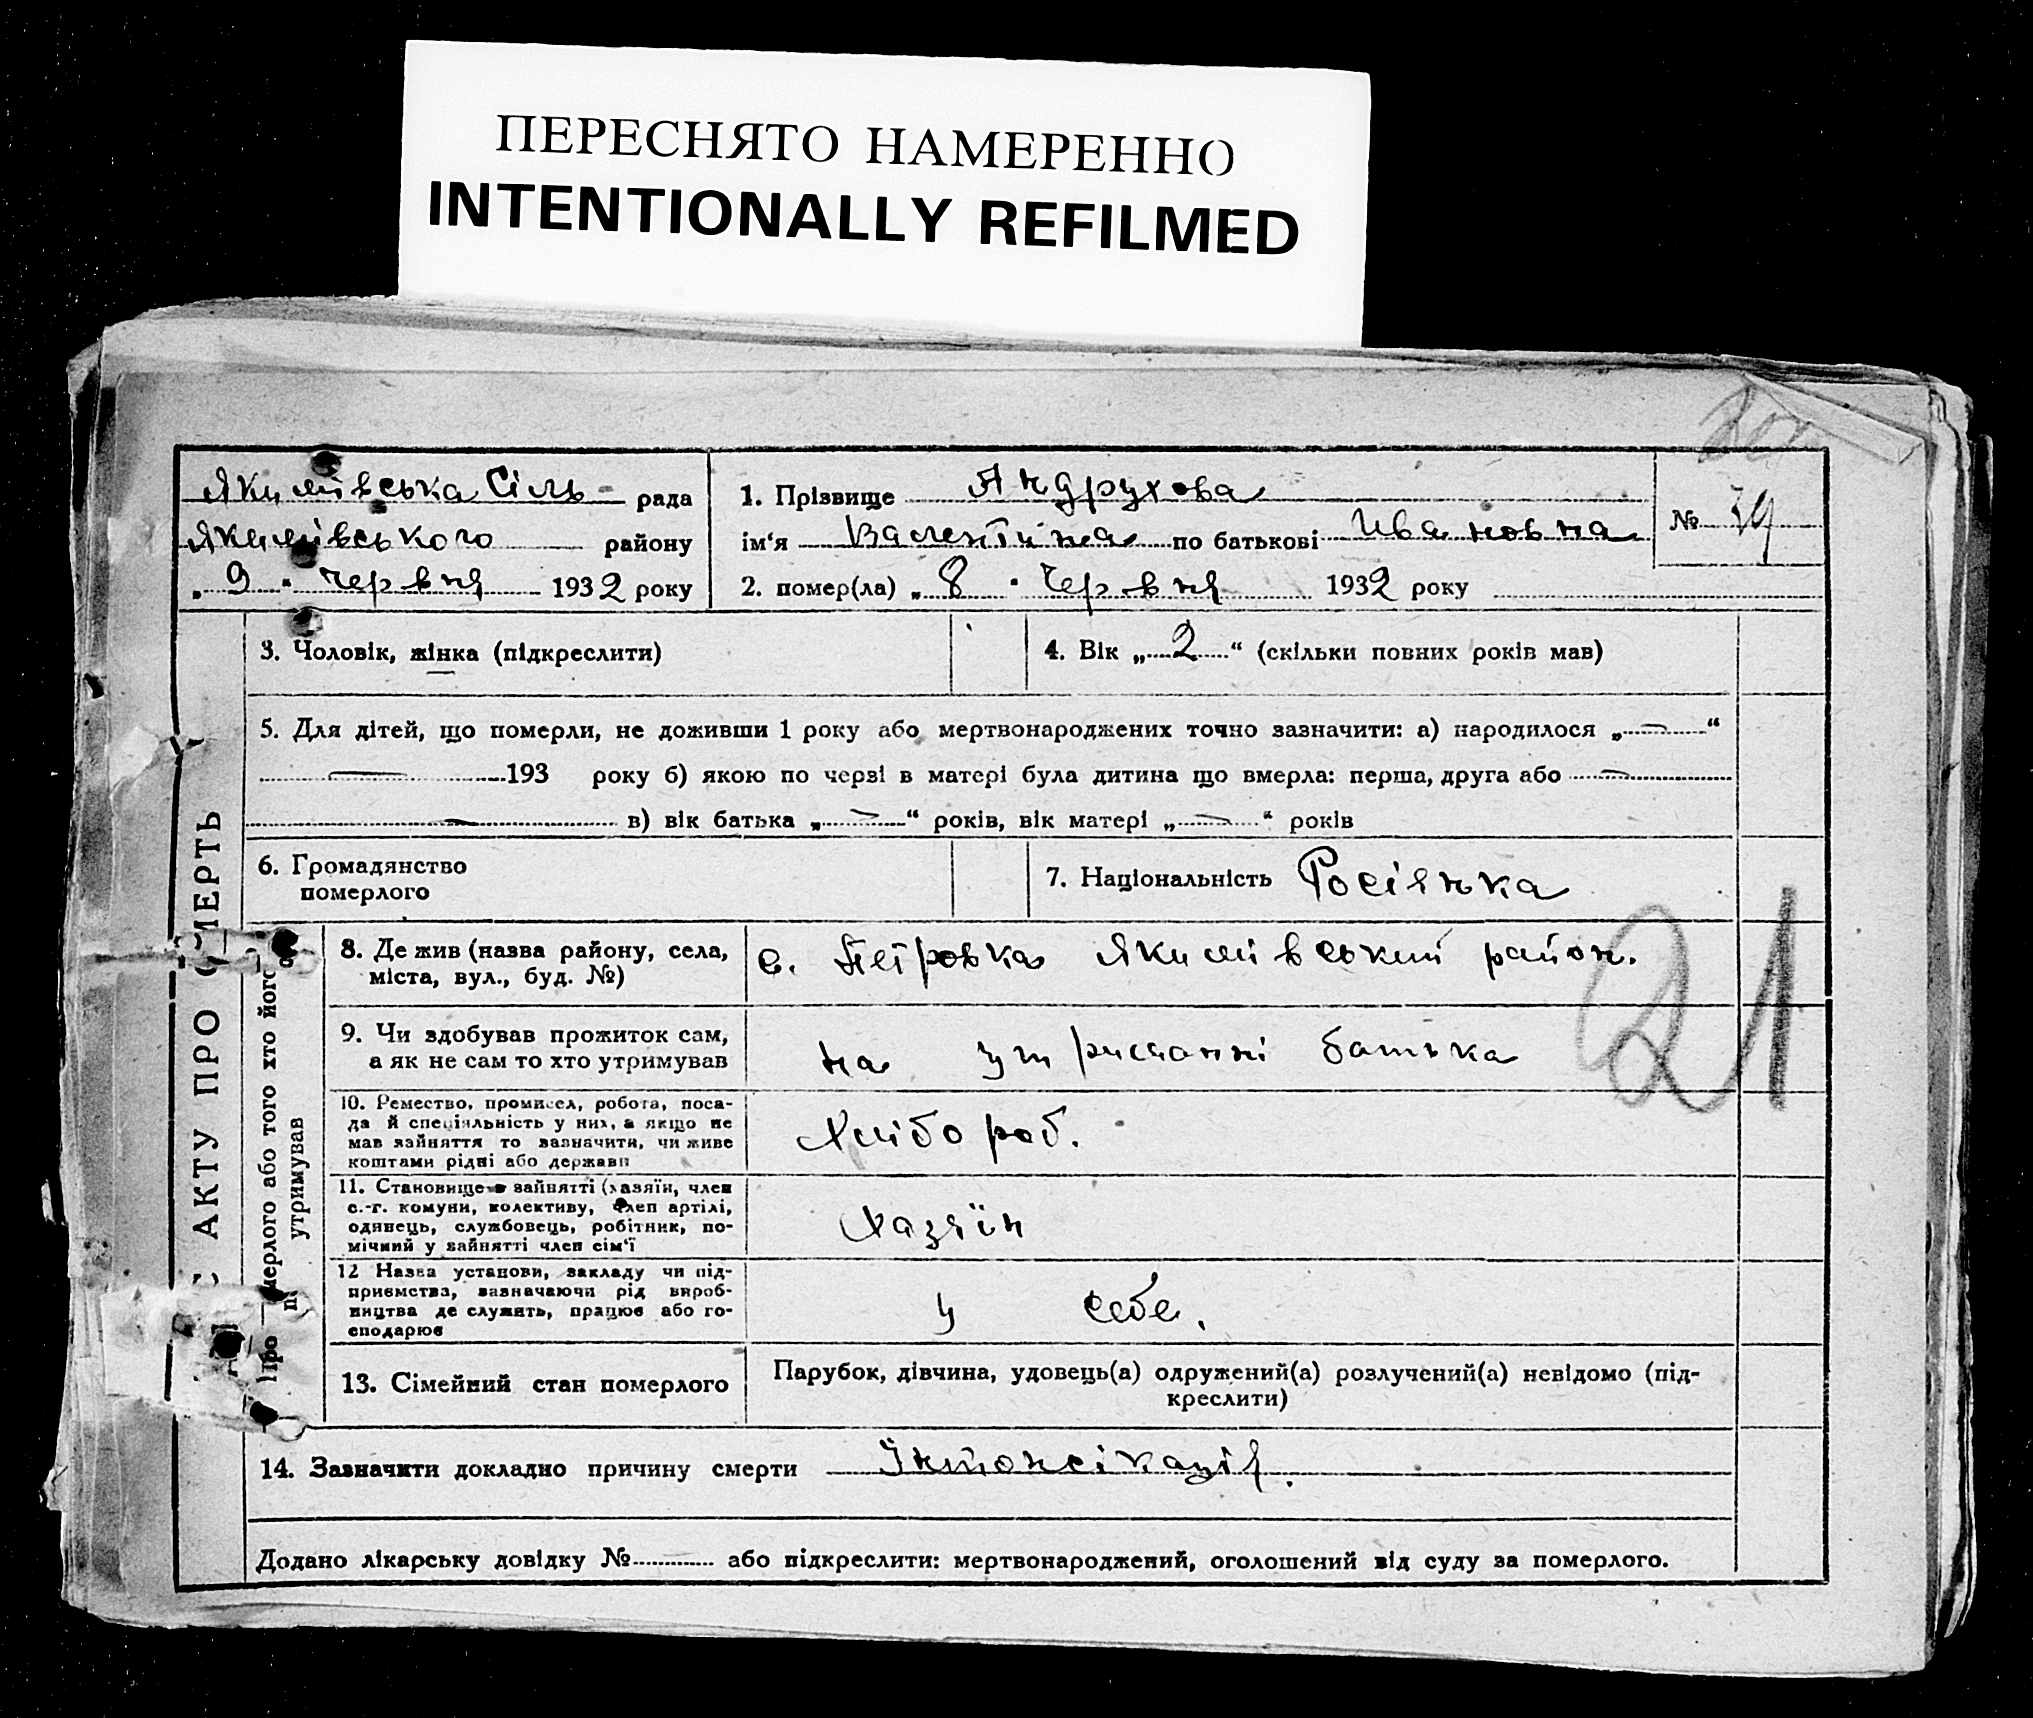 ПЕРЕСНЯТО НАМЕРЕННО
INTENTIONALLY REFILMED
Якимівська Сіль- рада
Якимівського району
„ 9 " червня 1932 року
1. Прізвище Андрухова
ім'я Валентина по батькові Ивановна
2. помер(ла) „ 8 " Червня 1932 року
№ 39
3. Чоловік, жінка (підкреслити)
4. Вік „ 2 “ (скільки повних років мав)
5. Для дітей, що померли, не доживши 1 року або мертвонароджених точно зазначити: а) народилося „ — “
— 193 року б) якою по черзі в матері була дитина що вмерла: перша, друга або —
— в) вік батька „ — “ років, вік матері „ — “ років
6. Громадянство
померлого
7. Національність Росіянка
8. Де жив (назва району, села,
міста, вул., буд. №)
с. Петровка Якимівський район.
9. Чи здобував прожиток сам,
а як не сам то хто утримував
на утриманні батька
10. Ремество, промисел, робота, поса-
да й спеціяльність у них, а якщо не
мав зайняття то зазначити, чи живе
коштами рідні або держави
Хлібороб.
11. Становище в зайнятті (хазяїн, член
с.-г. комуни, колективу, член артілі,
одинець, службовець, робітник, по-
мічний у зайнятті член сім'ї
Хазяїн
12 Назва установи, закладу чи під-
приємства, зазначаючи рід вироб-
ництва де служить, працює або го-
сподарює
у себе.
13. Сімейний стан померлого
Парубок, дівчина, удовець(а) одружений(а) розлучений(а) невідомо (під-
креслити)
14. Зазначити докладно причину смерти Інтонсікація.
Додано лікарську довідку № або підкреслити: мертвонароджений, оголошений від суду за померлого.
АКТУ ПРО СМЕРТЬ
Про померлого або того хто його
утримував
21